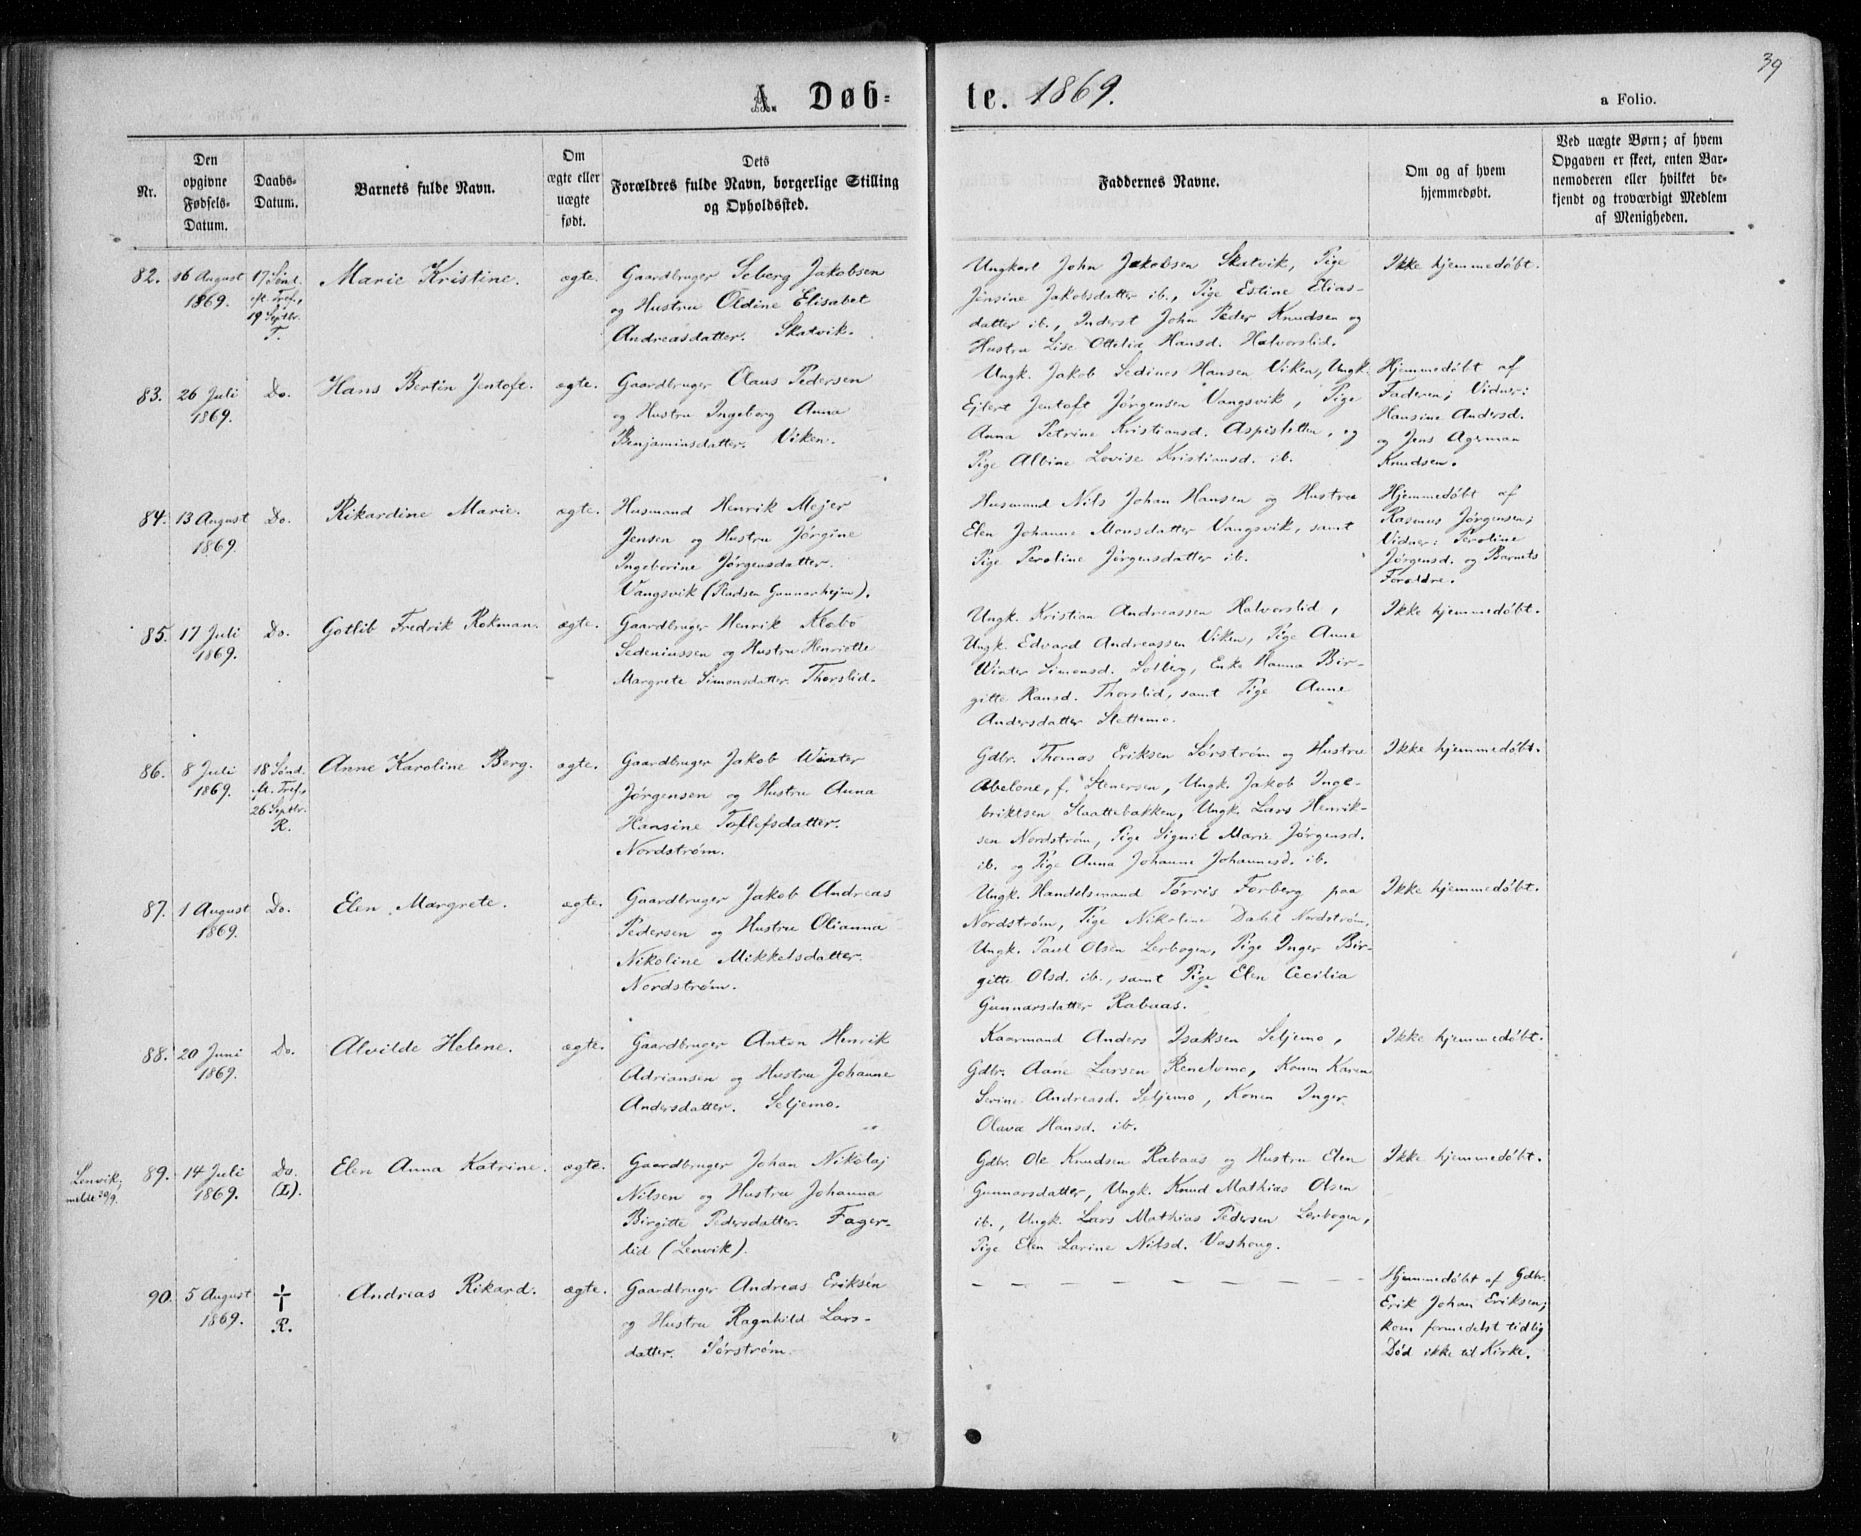 39
A. Døbte. 1869.
a Folio.
Nr.
Den opgivne Fødsels-Datum.
Daabs-Datum.
Barnets fulde Navn.
Om ægte eller uægte født.
Dets Forældres fulde Navn, borgerlige Stilling og Opholdssted.
Faddernes Navne.
Om og af hvem hjemmedøbt.
Ved uægte Børn; af hvem Opgaven er skeet, enten Barnemoderen eller hvilket bekjendt og troværdigt Medlem af Menigheden.
82.
16 August
1869.
17 Sönd.
eft. Tref.,
19 Septbr.
T.
Marie Kristine.
ægte.
Gaardbruger Seberg Jakobsen
og Hustru Oldine Elisabet
Andreasdatter. Skatvik.
Ungkarl John Jakobsen Skatvik, Pige
Jensine Jakobsdatter ib., Pige Estine Elias-
datter ib., Inderst John Peder Knudsen og
Hustru Lise Ottelie Hansd. Halvorslid.
Ikke hjemmedøbt.
83.
26 Juli
1869.
Do.
Hans Bertin Jentoft.
ægte.
Gaardbruger Olaus Pedersen
og Hustru Ingeborg Anna
Benjaminsdatter. Viken.
Ungk. Jakob Sedines Hansen Viken, Ungk.
Ejlert Jentoft Jørgensen Vangsvik, Pige
Anna Petrine Kristiansd. Aspisletten, og
Pige Albine Lovise Kristiansd. ib.
Hjemmedøbt af
Faderen; Vidner:
Hansine Andersd.
og Jens Agerman
Knudsen.
84.
13 August
1869.
Do.
Rikardine Marie.
ægte.
Husmand Henrik Mejer
Jensen og Hustru Jørgine
Ingeborine Jørgensdatter.
Vangsvik (Pladsen Gunnarhejm).
Husmand Nils Johan Hansen og Hustru
Elen Johanne Monsdatter Vangsvik, samt
Pige Peroline Jørgensdatter ib.
Hjemmedøbt af
Rasmus Jørgensen;
Vidner: Peroline
Jørgensd. og Barnets
Forældre.
85.
17 Juli
1869.
Do.
Gotlib Fredrik Rokman.
ægte.
Gaardbruger Henrik Klæbo
Sedeniussen og Hustru Henriette
Margrete Simonsdatter. Thorslid.
Ungk. Kristian Andreassen Halvorslid,
Ungk. Edvard Andreassen Viken, Pige Anne
Winter Simonsd. Solberg, Enke Hanna Bir-
gitte Hansd. Thorslid, samt Pige Anne
Andersdatter Slettemo.
Ikke hjemmedøbt.
86.
8 Juli
1869.
18 Sønd.
Tref.,
26 Septbr.
R.
Anne Karoline Berg.
ægte.
Gaardbruger Jakob Winter
Jørgensen og Hustru Anna
Hansine Tollefsdatter.
Nordstrøm.
Gdbr. Thomas Eriksen Sørstrøm og Hustru
Abelone, f. Stenersen, Ungk. Jakob Inge-
briktsen Slaattebakken, Ungk. Lars Henrik-
sen Nordstrøm, Pige Signil Marie Jørgensd.
ib. og Pige Anna Johanne Johannesd. ib.
Ikke hjemmedøbt.
87.
1 August
1869.
Do.
Elen Margrete.
ægte.
Gaardbruger Jakob Andreas
Pedersen og Hustru Olianna
Nikoline Mikkelsdatter.
Nordstrøm.
Ungk. Handelsmand Tørris Forberg paa
Nordstrøm, Pige Nikoline Dahl Nordstrøm,
Ungk. Paul Olsen Lerbogen, Pige Inger Bir-
gitte Olsd. ib., samt Pige Elen Cecilia
Gunnarsdatter Rabaas.
Ikke hjemmedøbt.
88.
20 Juni
1869.
Do.
Alvilde Helene.
ægte.
Gaardbruger Anton Henrik
Adriansen og Hustru Johanne
Andersdatter. Seljemo.
Kaarmand Anders Isaksen Seljemo,
Gdbr. Aane Larsen Renelvmo, Konen Karen
Serine Andreasd. Seljemo, Konen Inger
Olava Hansd. ib.
Ikke hjemmedøbt.
Lenvik;
melde 30/9.
89.
14 Juli
1869.
Do.
(L).
Elen Anna Katrine.
ægte.
Gaardbruger Johan Nikolaj
Nilsen og Hustru Johanna
Birgitte Pedersdatter. Fager-
lid (Lenvik).
Gdbr. Ole Knudsen Rabaas og Hustru Elen
Gunnarsdatter, Ungk. Knud Mathias Olsen
ib., Ungk. Lars Mathias Pedersen Lerbogen,
Pige Elen Larine Nilsd. Vashoug.
Ikke hjemmedøbt.
90.
5 August
1869.
†
R.
Andreas Rikard.
ægte.
Gaardbruger Andreas Eriksen
og Hustru Ragnhild Lars-
datter. Sørstrøm.
— — — — — — — — —
Hjemmedøbt af Gdbr.
Erik Johan Eriksen;
kom formedelst tidlig
Død ikke til Kirke.